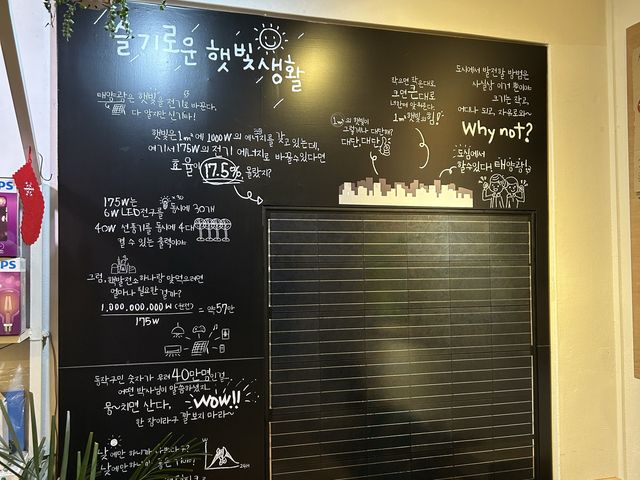 슬기로운 햇빛생활
태양광은 햇빛을 전기로 바꾼다.
다 알지만 신기해!
햇빛은 1m²에 1000W의 에너지를 갖고있는데,
여기서 175W의 전기 에너지로 바꿀수있다면
효율이 17.5% 올랐지?
175W는
6W LED전구를 동시에 30개
40W 선풍기를 동시에 4대
켤 수 있는 출력이야
그럼, 핵발전소하나랑 맞먹으려면
얼마나 필요한 걸까?
1,000,000,000W (원전)
175W
= 약57만
동작구민 숫자가 무려 40만명인걸
어떤 박사님이 말씀하셨지..
뭉~치면 산다, WOW!!
한 장이라구 깔보지 마라~
낮에만 하니까
낮에만 하니
24H
작으면 작은대로
크면 큰대로
너만써 알쏭달쏭
1m² 햇빛의 힘!
1m²의 햇빛이
그렇게나 대단해?
대단,대단!
도시에서 발전할 방법은
사실상 이거 뿐이야
크기는 작고,
어디나 되고, 자유로와~
Why not?
도심에서
할수있다, 태양광!
PS
PS